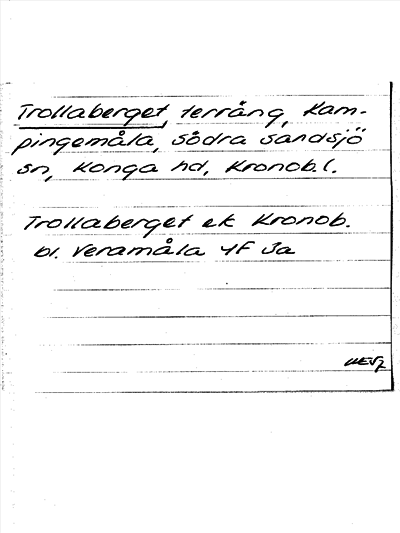 Trollaberget, terräng, Kam-
pingemåla, Södra Sandsjö
sn, Konga hd, Kronob. l.
Trollaberget ek Kronob.
bl. Veramåla 4F Ja